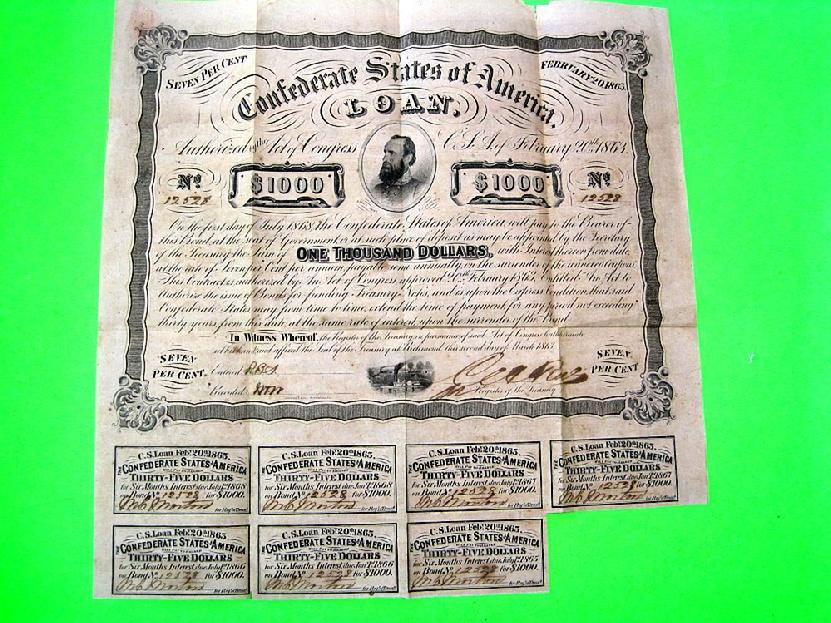 SEVEN PER CENT
FEBRUARY 20, 1863.
Confederate States of America.
LOAN.
Authorized by the Act of Congress C.S.A. of February 20th 1863.
No No
$1000 $1000
12528 12528
On the first day of July 1868, The Confederate States of America will pay to the Bearer of
this Bond, at the seat of Government, or at such place of deposit as may be appointed by the Secretary
of the Treasury, the Sum of ONE THOUSAND DOLLARS, with Interest thereon from date
at the rate of Seven per Cent per annum payable semi annually, on the surrender of the annexed Coupons
This Contract is authorized by the Act of Congress approved 20th February 1863, Entitled "An Act to
Authorize the issue of Bonds for funding Treasury Notes, and is upon the Express Condition that said
Confederate States may from time to time, extend the time of payment for any period not exceeding
thirty years from this date, at the same rate of interest, upon the surrender of the Bond
In Witness Whereof, the Register of the Treasury, in pursuance of said Act of Congress, hath hereunto
set his hand and affixed the Seal of the Treasury, at Richmond, this second day of March 1863.
SEVEN
PER CENT.
Entered
Recorded
Register of the Treasury
SEVEN
PER CENT
C.S. Loan Feb. 20th 1863.
THE CONFEDERATE STATES OF AMERICA
THIRTY-FIVE DOLLARS
for Six Months Interest due July 1st 1868
on Bond No 12528 for $1000.
for Reg'r Treas'y
C.S. Loan Feb. 20th 1863.
THE CONFEDERATE STATES OF AMERICA
THIRTY-FIVE DOLLARS
for Six Months Interest due Jan'y 1st 1868
on Bond No 12528 for $1000.
for Reg'r Treas'y
C.S. Loan Feb. 20th 1863.
THE CONFEDERATE STATES OF AMERICA
THIRTY-FIVE DOLLARS
for Six Months Interest due July 1st 1867
on Bond No 12528 for $1000.
for Reg'r Treas'y
C.S. Loan Feb. 20th 1863.
THE CONFEDERATE STATES OF AMERICA
THIRTY-FIVE DOLLARS
for Six Months Interest due Jan'y 1st 1867
on Bond No 12528 for $1000.
for Reg'r Treas'y
C.S. Loan Feb. 20th 1863.
THE CONFEDERATE STATES OF AMERICA
THIRTY-FIVE DOLLARS
for Six Months Interest due July 1st 1866
on Bond No 12528 for $1000.
for Reg'r Treas'y
C.S. Loan Feb. 20th 1863.
THE CONFEDERATE STATES OF AMERICA
THIRTY-FIVE DOLLARS
for Six Months Interest due Jan'y 1st 1866
on Bond No 12528 for $1000.
for Reg'r Treas'y
C.S. Loan Feb. 20th 1863.
THE CONFEDERATE STATES OF AMERICA
THIRTY-FIVE DOLLARS
for Six Months Interest due July 1st 1865
on Bond No 12528 for $1000.
for Reg'r Treas'y